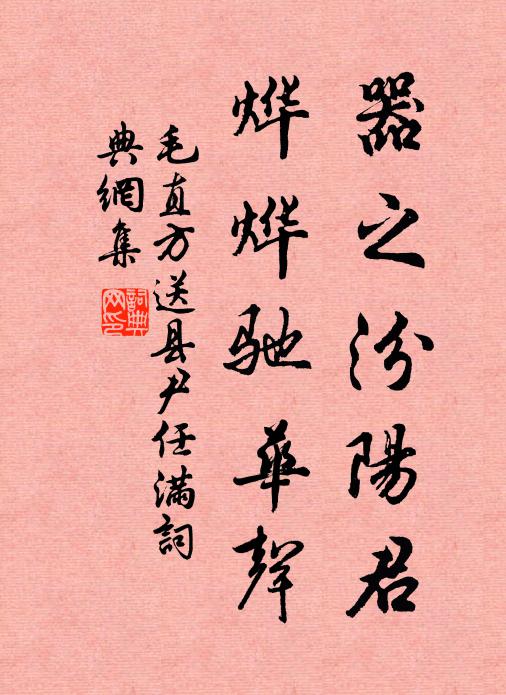 器之汾陽君
烨烨馳華聲
毛直方送县尹任满詞
典網集
詞典网印